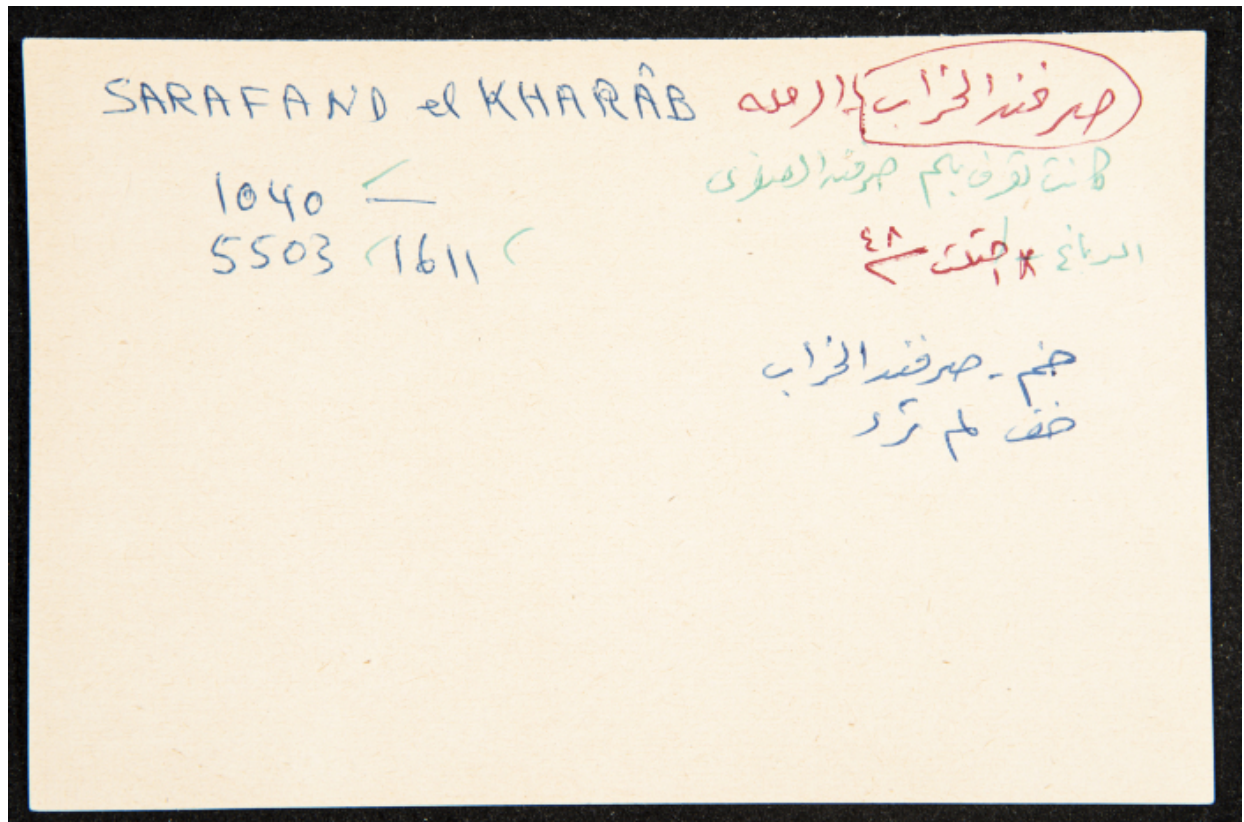 SARAFAND el KHARÂB صرفند الخراب - الرمله
كانت تعرف باسم صرفند الصغرى
1040
الدباغ - احتلت ٤٨
5503 1611
خم - صرفند الخراب
خف لم ترد